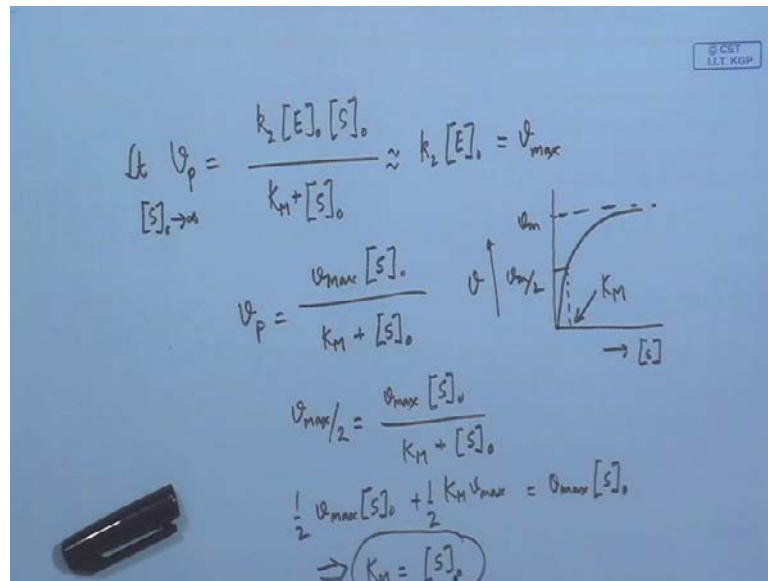 © CET
I.I.T. KGP
Lt v_p = k₂[E]₀[S]₀ / K_M + [S]₀ ≈ k₂[E]₀ = v_max
[S]₀→∞
v_m
v_p = v_max[S]₀ / K_M + [S]₀
v v_m/2 K_M
→ [S]
v_max/2 = v_max[S]₀ / K_M + [S]₀
1/2 v_max[S]₀ + 1/2 K_M v_max = v_max[S]₀
⇒ K_M = [S]₀